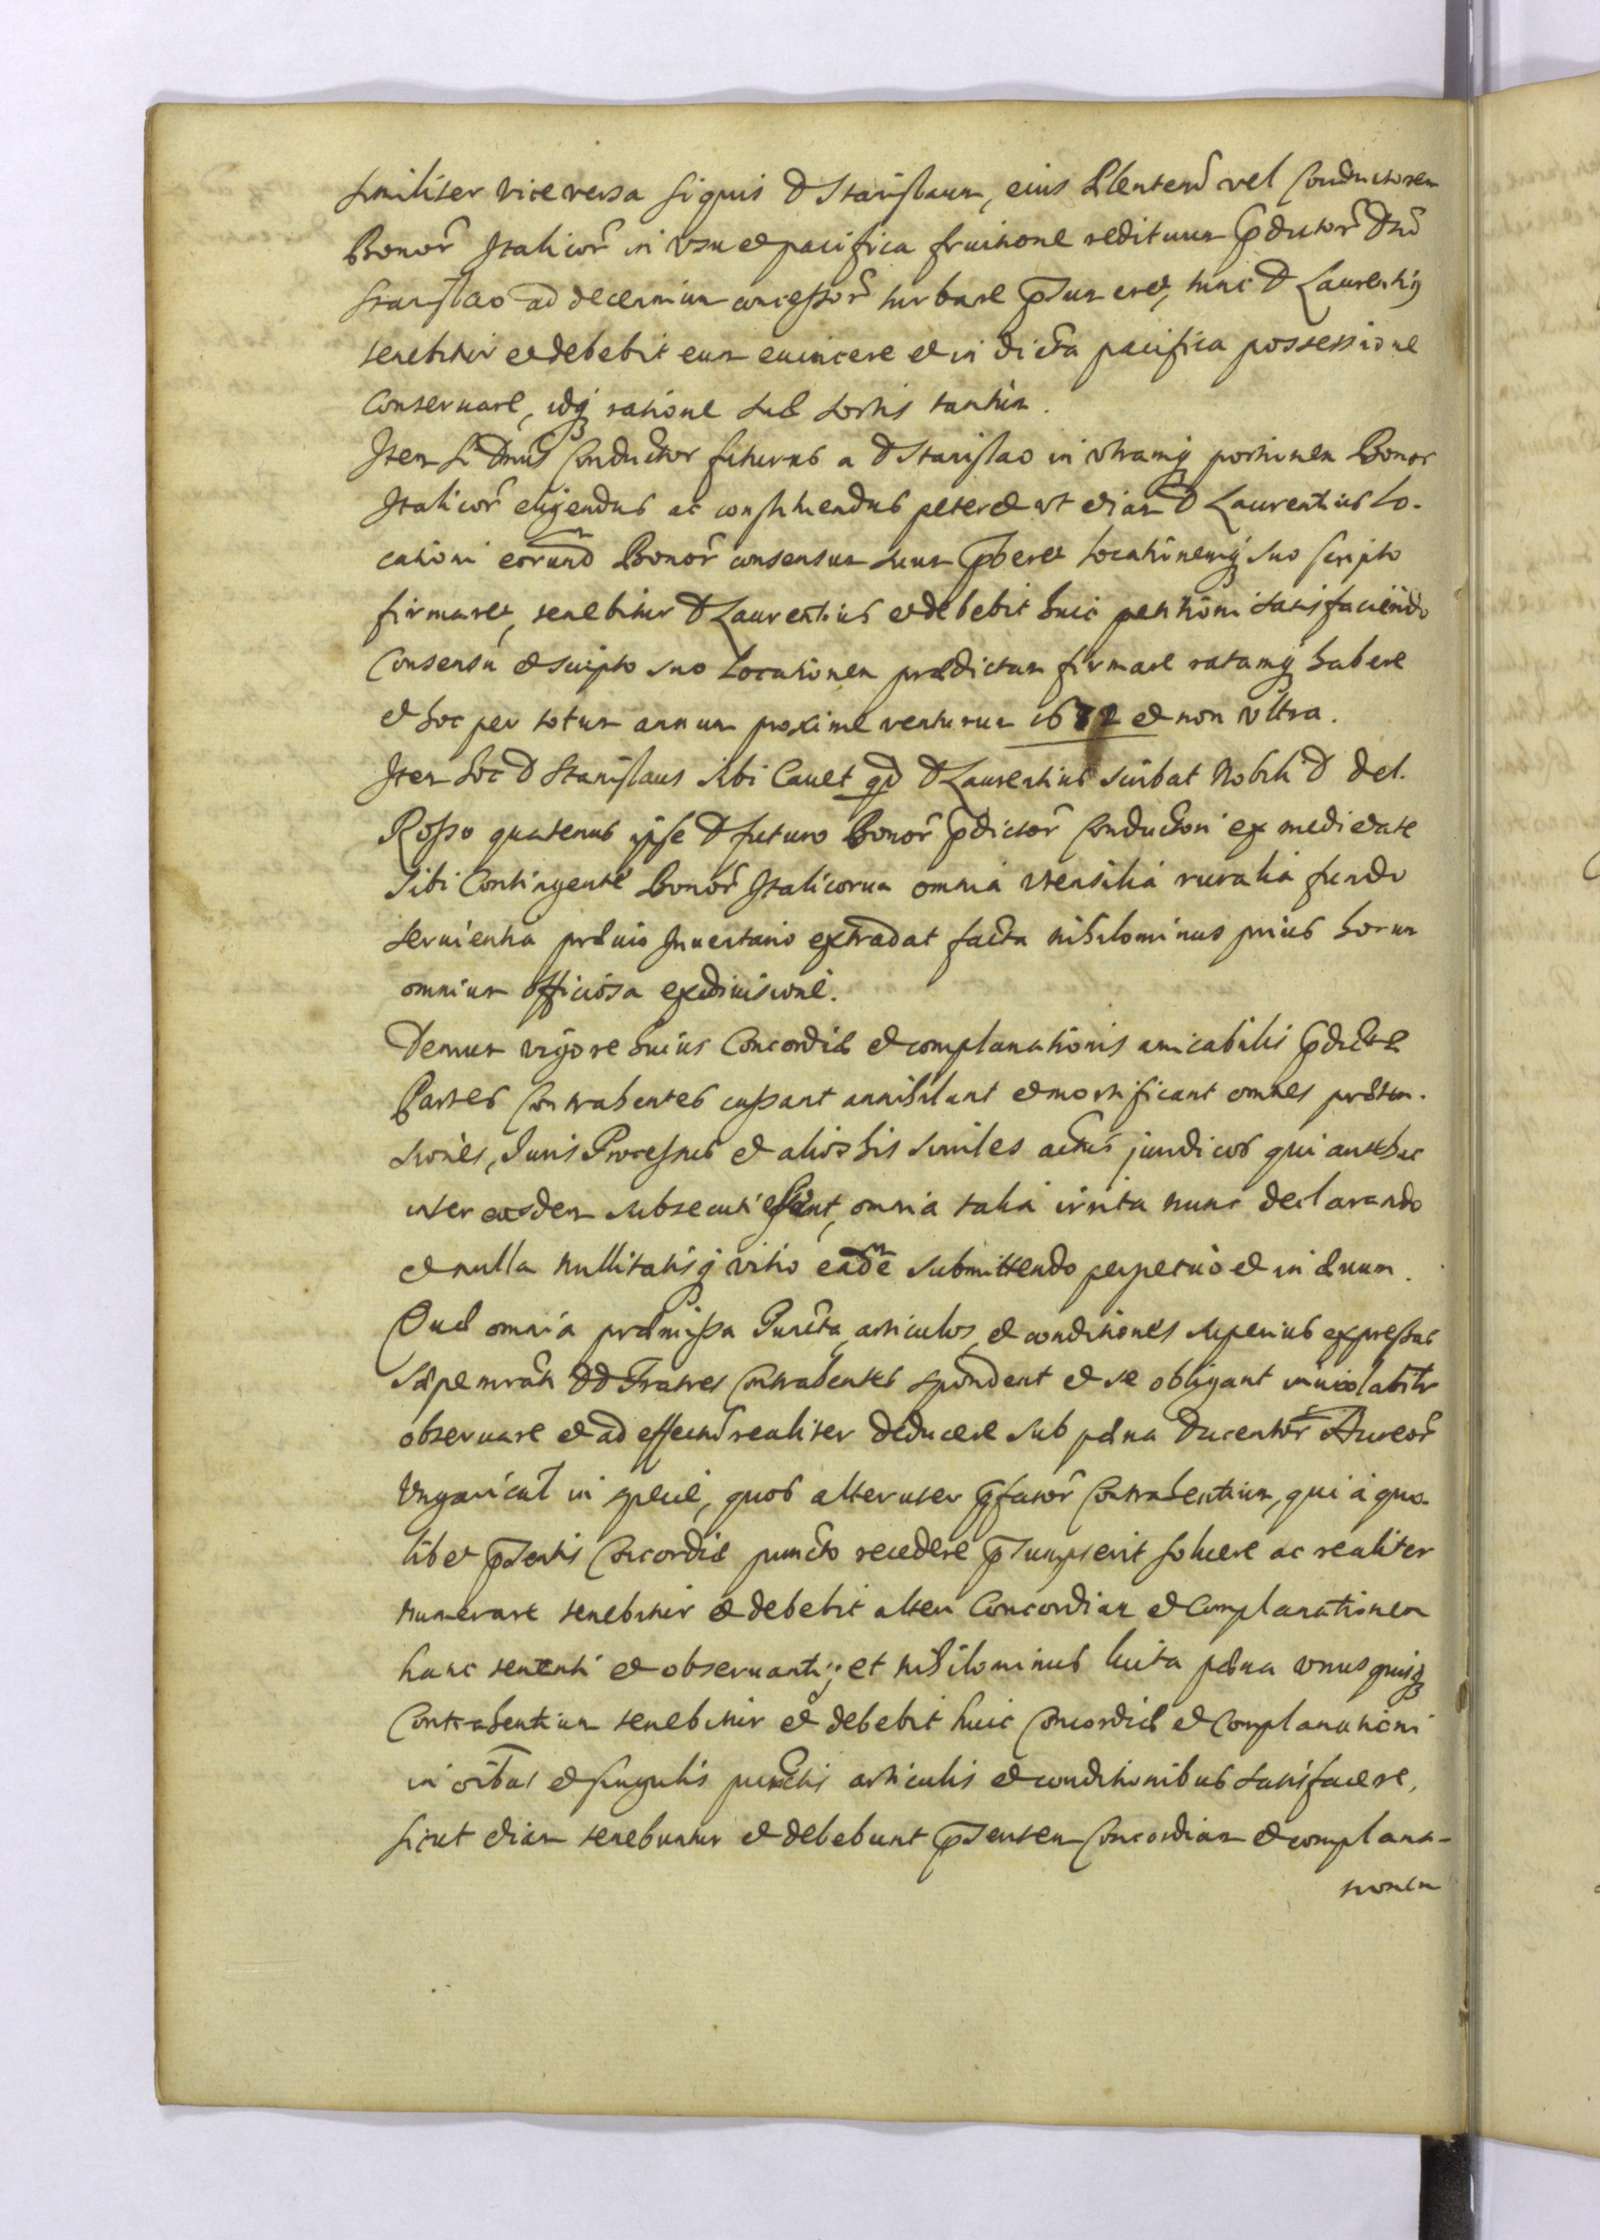 Similiter vice versa si quis D Stanislaum, eius Plentem vel Conductorem
Bonor Italicor in usu et pacifica fruitione redituum pdictor Dno
Stanislao ad decennium concessor turbare psumeret, tunc D Laurentius
tenebitur et debebit eum euincere et in dicta pacifica possessione
Conseruare, idq ratione suæ sortis tantum.
Item si Dnus Conductor futurus a D Stanislao in utramq portionem Bonor
Italicor eligendus ac constituendus peteret ut etiam D Laurentius Lo-
cationi eorund Bonor consensum suum pberet Locationemq suo scripto
firmaret, tenebitur D Laurentius et debebit huic petitioni satisfaciendo
Consensu et scripto suo Locationem prædictam firmare ratamq habere
et hoc per totum annum proxime venturum 1672 et non ultra.
Item hoc D Stanislaus sibi Cauet qd D Laurentius scribat Nobili D del.
Rosso quatenus ipse D futuro Bonor pdictor Conductori ex medietate
sibi Contingente Bonor Italicorum omnia utensilia ruralia fundo
seruientia præuio Inuentario extradat facta nihilominus prius horum
omnium officiosa exdiuisione.
Demum vigore huius Concordiæ et complanationis amicabilis pdictæ
Partes Contrahentes cassant annihilant et mortificant omnes præten-
siones, Iuris Processus et alios his similes actus juridicos qui antehac
inter eosdem subsecuti essent, omnia talia irrita nunc declarando
et nulla nullitatisq vitio eadem submittendo perpetuo et in æuum.
Quæ omnia præmissa Puncta, articulos, et conditiones superius expressas
sæpenrati DD Fratres Contrahentes spondent et se obligant inuiolabilr
obseruare et ad effectum realiter deducere sub pæna Ducentor Aureor
Ungarical in specie, quos alteruter pfator Contrahentium, qui à quo-
libet psentis Concordiæ puncto recedere psumpserit soluere ac realiter
numerare tenebitur et debebit alteri Concordiam et Complanationem
hanc tenenti et obseruanti; et nihilominus luita pæna unusquisq
Contrahentium tenebitur et debebit huic Concordiæ et Complanationi
in oibus et singulis punctis articulis et conditionibus satisfacere,
sicut etiam tenebuntur et debebunt psentem Concordiam et complana-
tionem